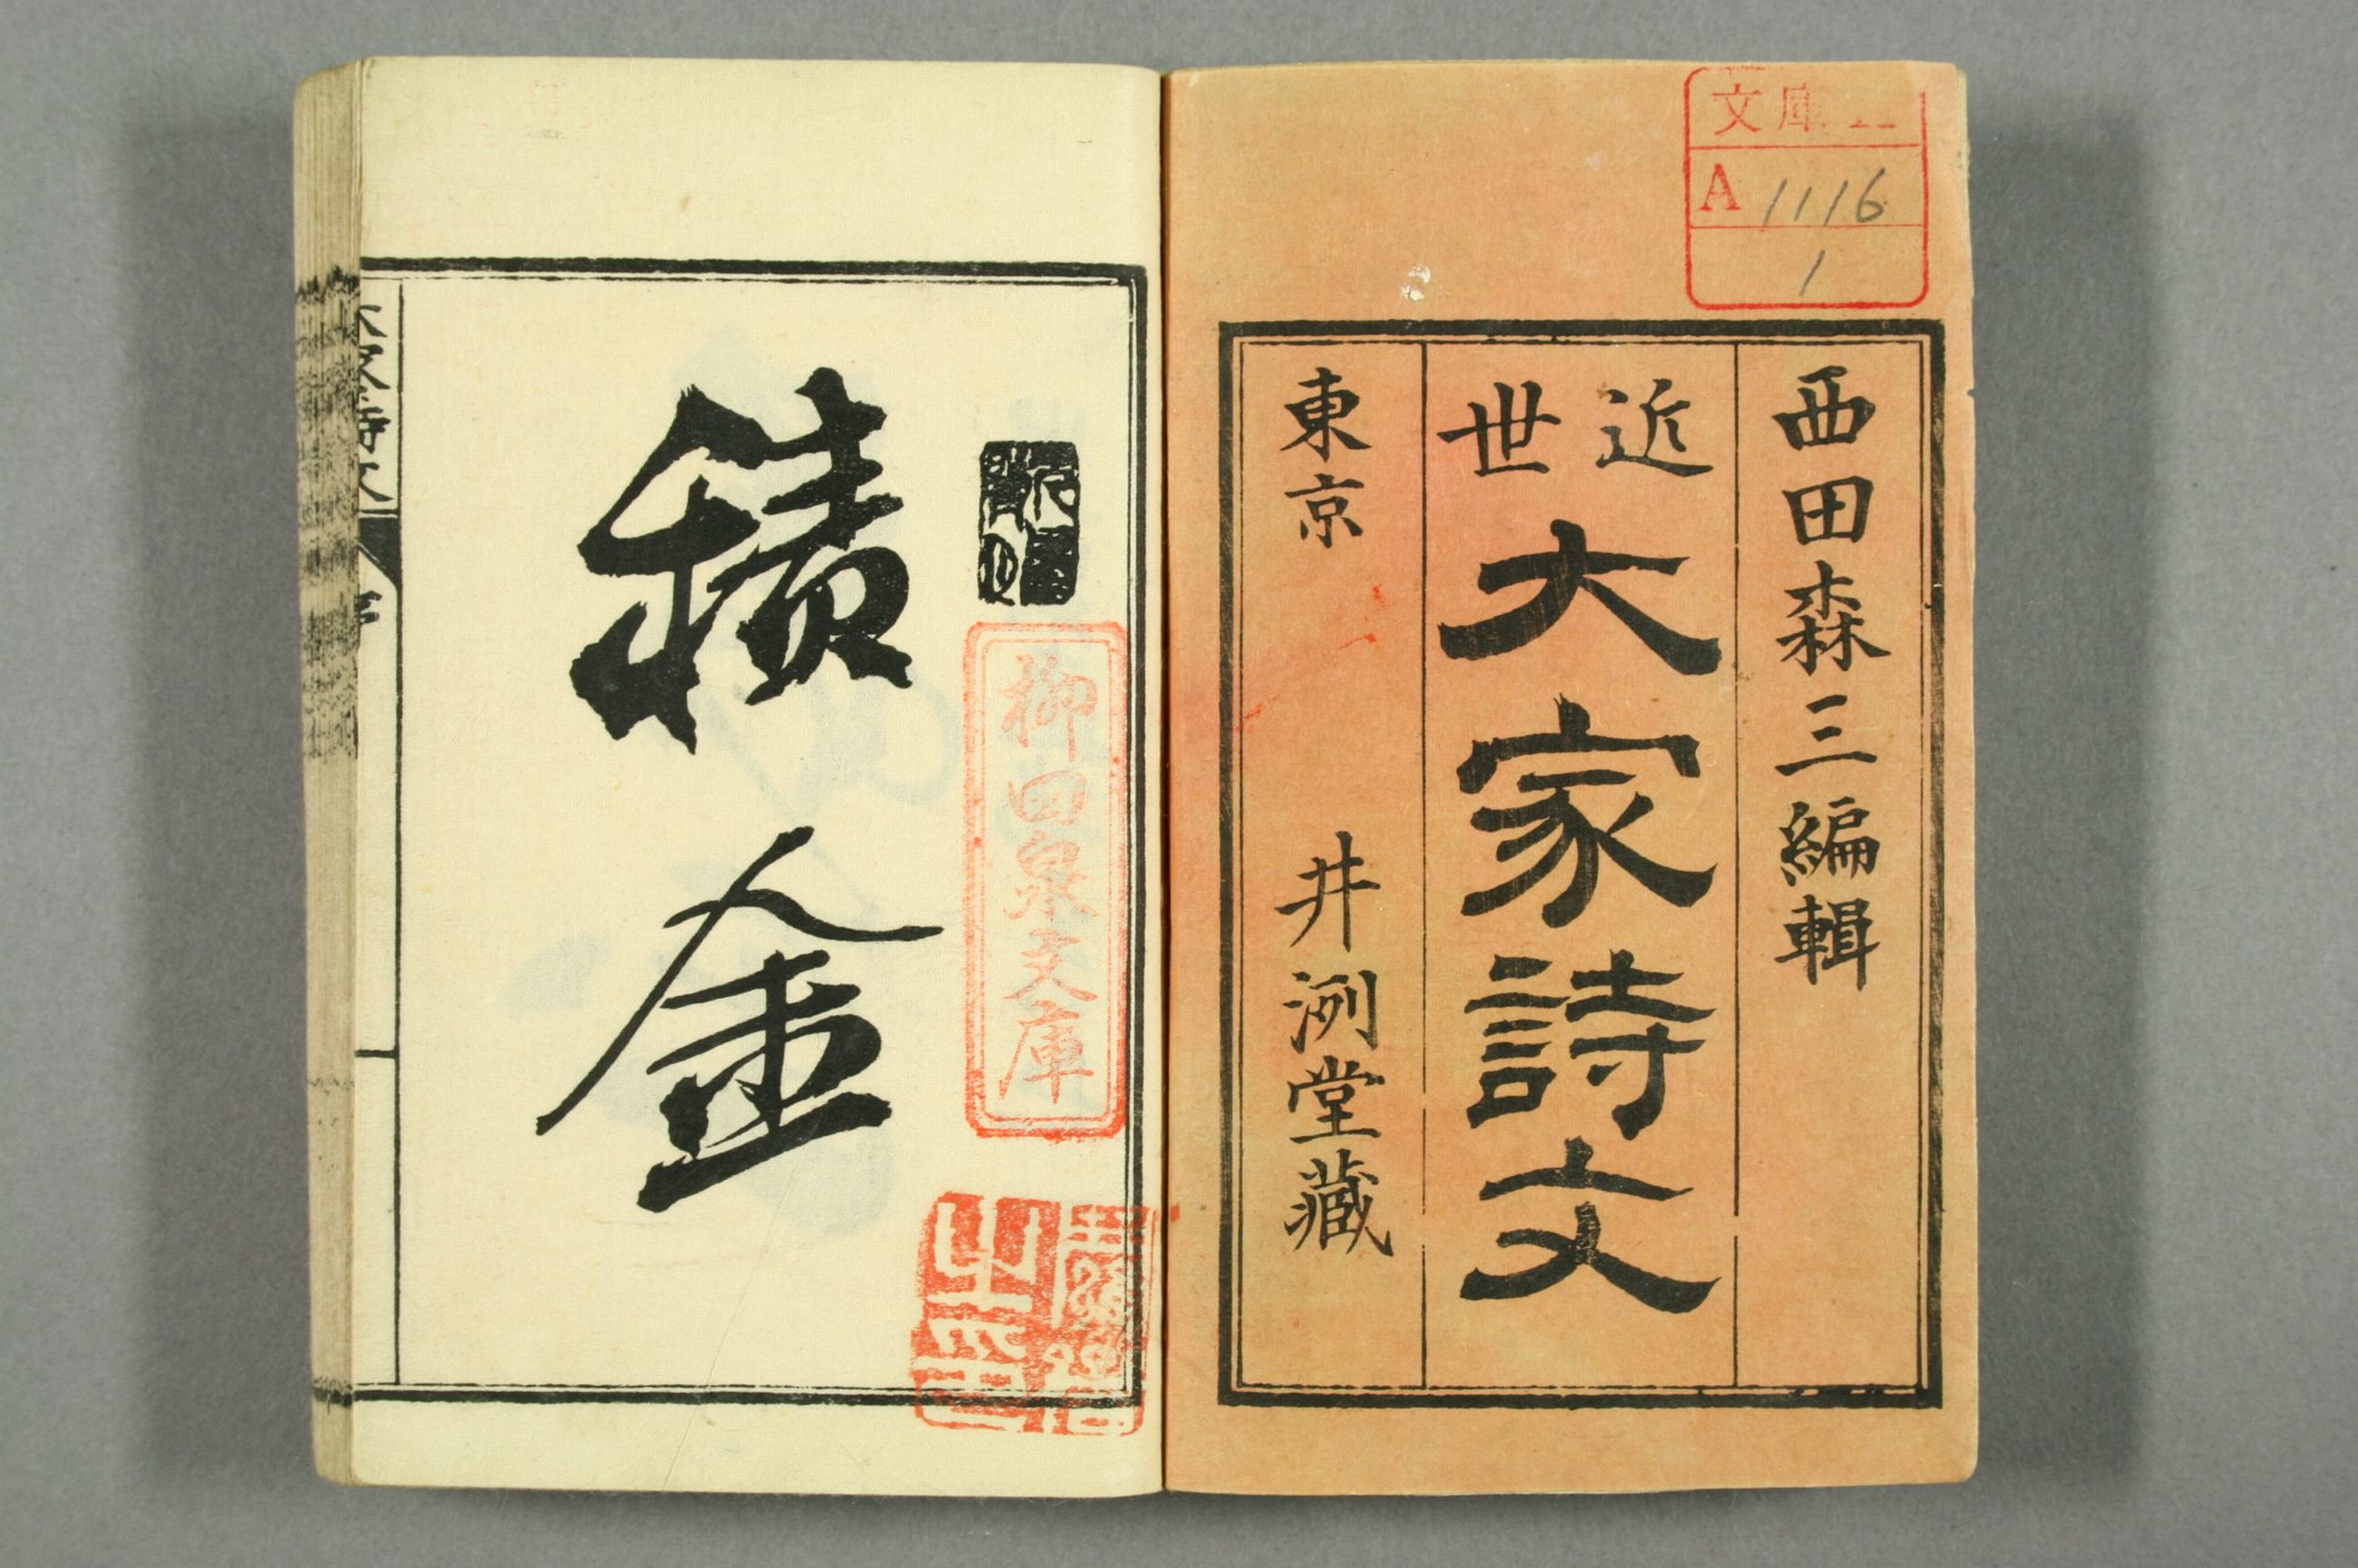 文庫
A 1116
1
西田森三編輯
近世
大家詩文
東京 井洌堂藏
柳田泉文庫
積金